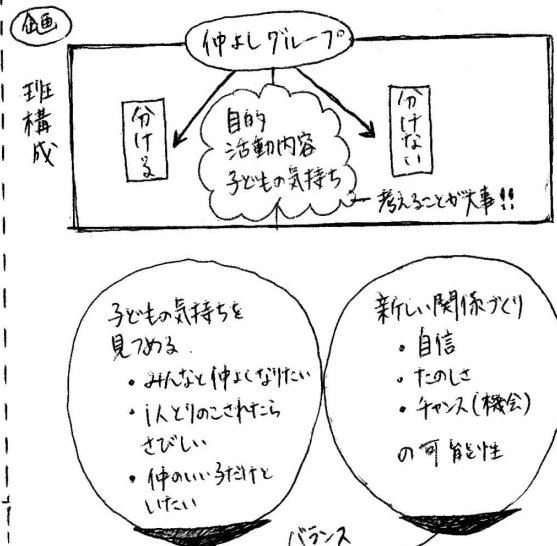 企画
班構成
仲よしグループ
分ける
目的
活動内容
子どもの気持ち
分けない
考えることが大事!!
子どもの気持ちを
見つめる.
・みんなと仲よくなりたい
・1人とりのこされたら
さびしい
・仲のいい子だけと
いたい
新しい関係づくり
・自信
・たのしさ
・チャンス(機会)
の可能性
バランス